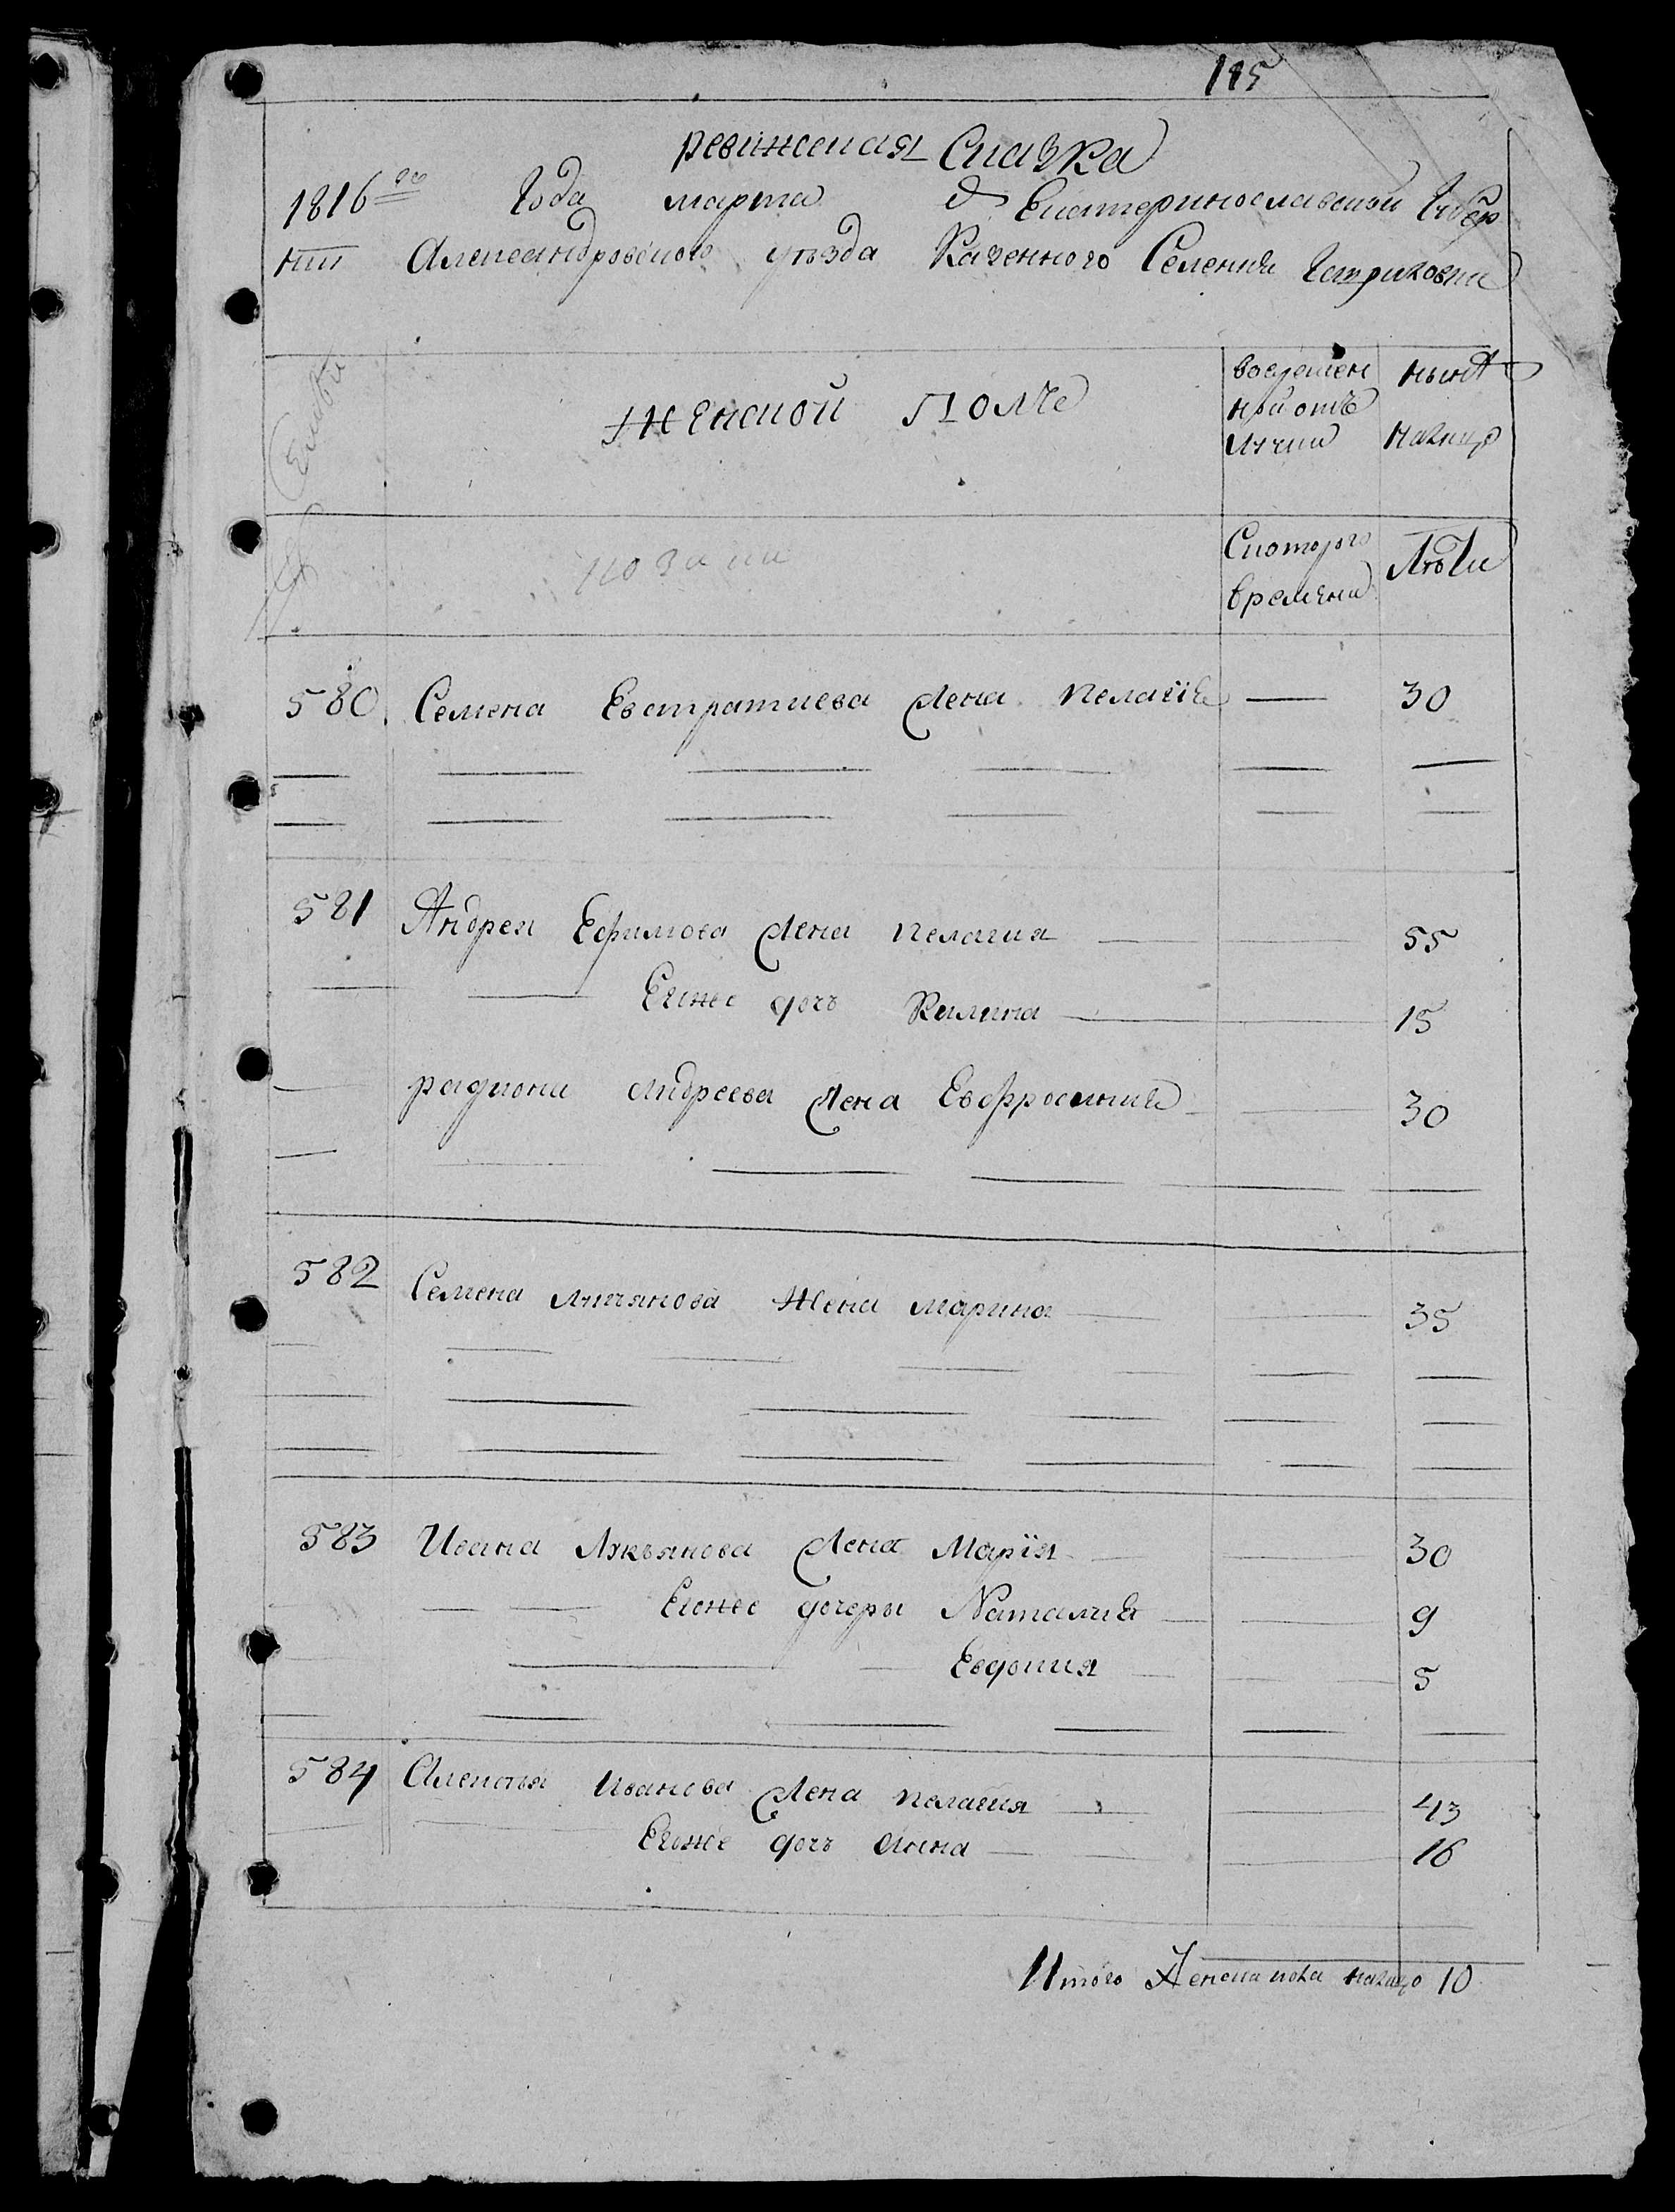 185
ревижская Сказка
1816го Года марта д Екатеринославской Губер
нии Александровского уезда Казенного Селения
Женской Поль
вовремен
ной отъ
лучки
ныне
на лицо
Семьи
козаки
Скоторго
времени
Лѣта
580. Семена Евстратиева Жена пелагїя — 30
581 Андрея Ефимова Жена пелагия — 55
Егоже дочь Килина — 15
радиона андреева Жена Евфросиния — 30
582 Семена Жена марина — 35
583 Ивана Лукьянова Жена Марїя — 30
Егоже дочери Наталия — 9
Евдокия — 5
584 Алексея Иванова Жена пелагия — 43
Егоже дочь анна — 16
Итого Женска пола налицо 10